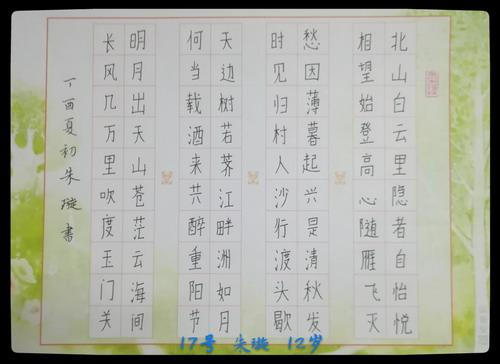 北山白云里隐者自怡悦
相望始登高心随雁飞灭
愁因薄暮起兴是清秋发
时见归村人沙行渡头歇
天边树若荠江畔洲如月
何当载酒来共醉重阳节
明月出天山苍茫云海间
长风几万里吹度玉门关
丁酉夏初朱璇书
17号 朱璇 12岁